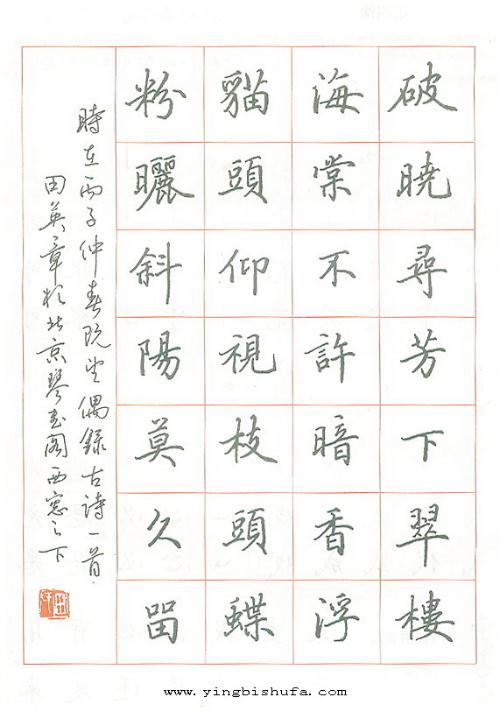 破曉尋芳下翠樓
海棠不許暗香浮
貓頭仰視枝頭蝶
粉曬斜陽莫久畱
時在丙子仲春既望偶錄古诗一首
田英章於北京琴書閣西窓之下
www.yingbishufa.com